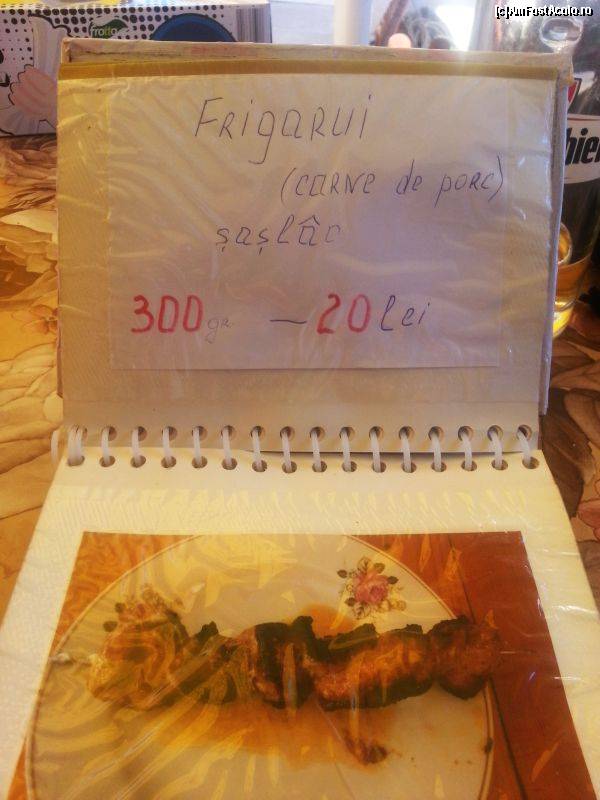 (c)AmFostAcolo.ro
frotto
hier
FRIgaRUI
(caRNe de poRc)
șașlâc
300 gr — 20 lei